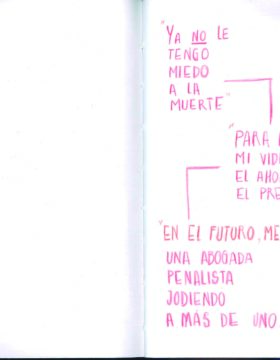 "YA NO LE
TENGO
MIEDO
A LA
MUERTE"
"PARA
MI VIDA
EL
EL
"EN EL FUTURO, ME
UNA ABOGADA
PENALISTA
JODIENDO
A MÁS DE UNO